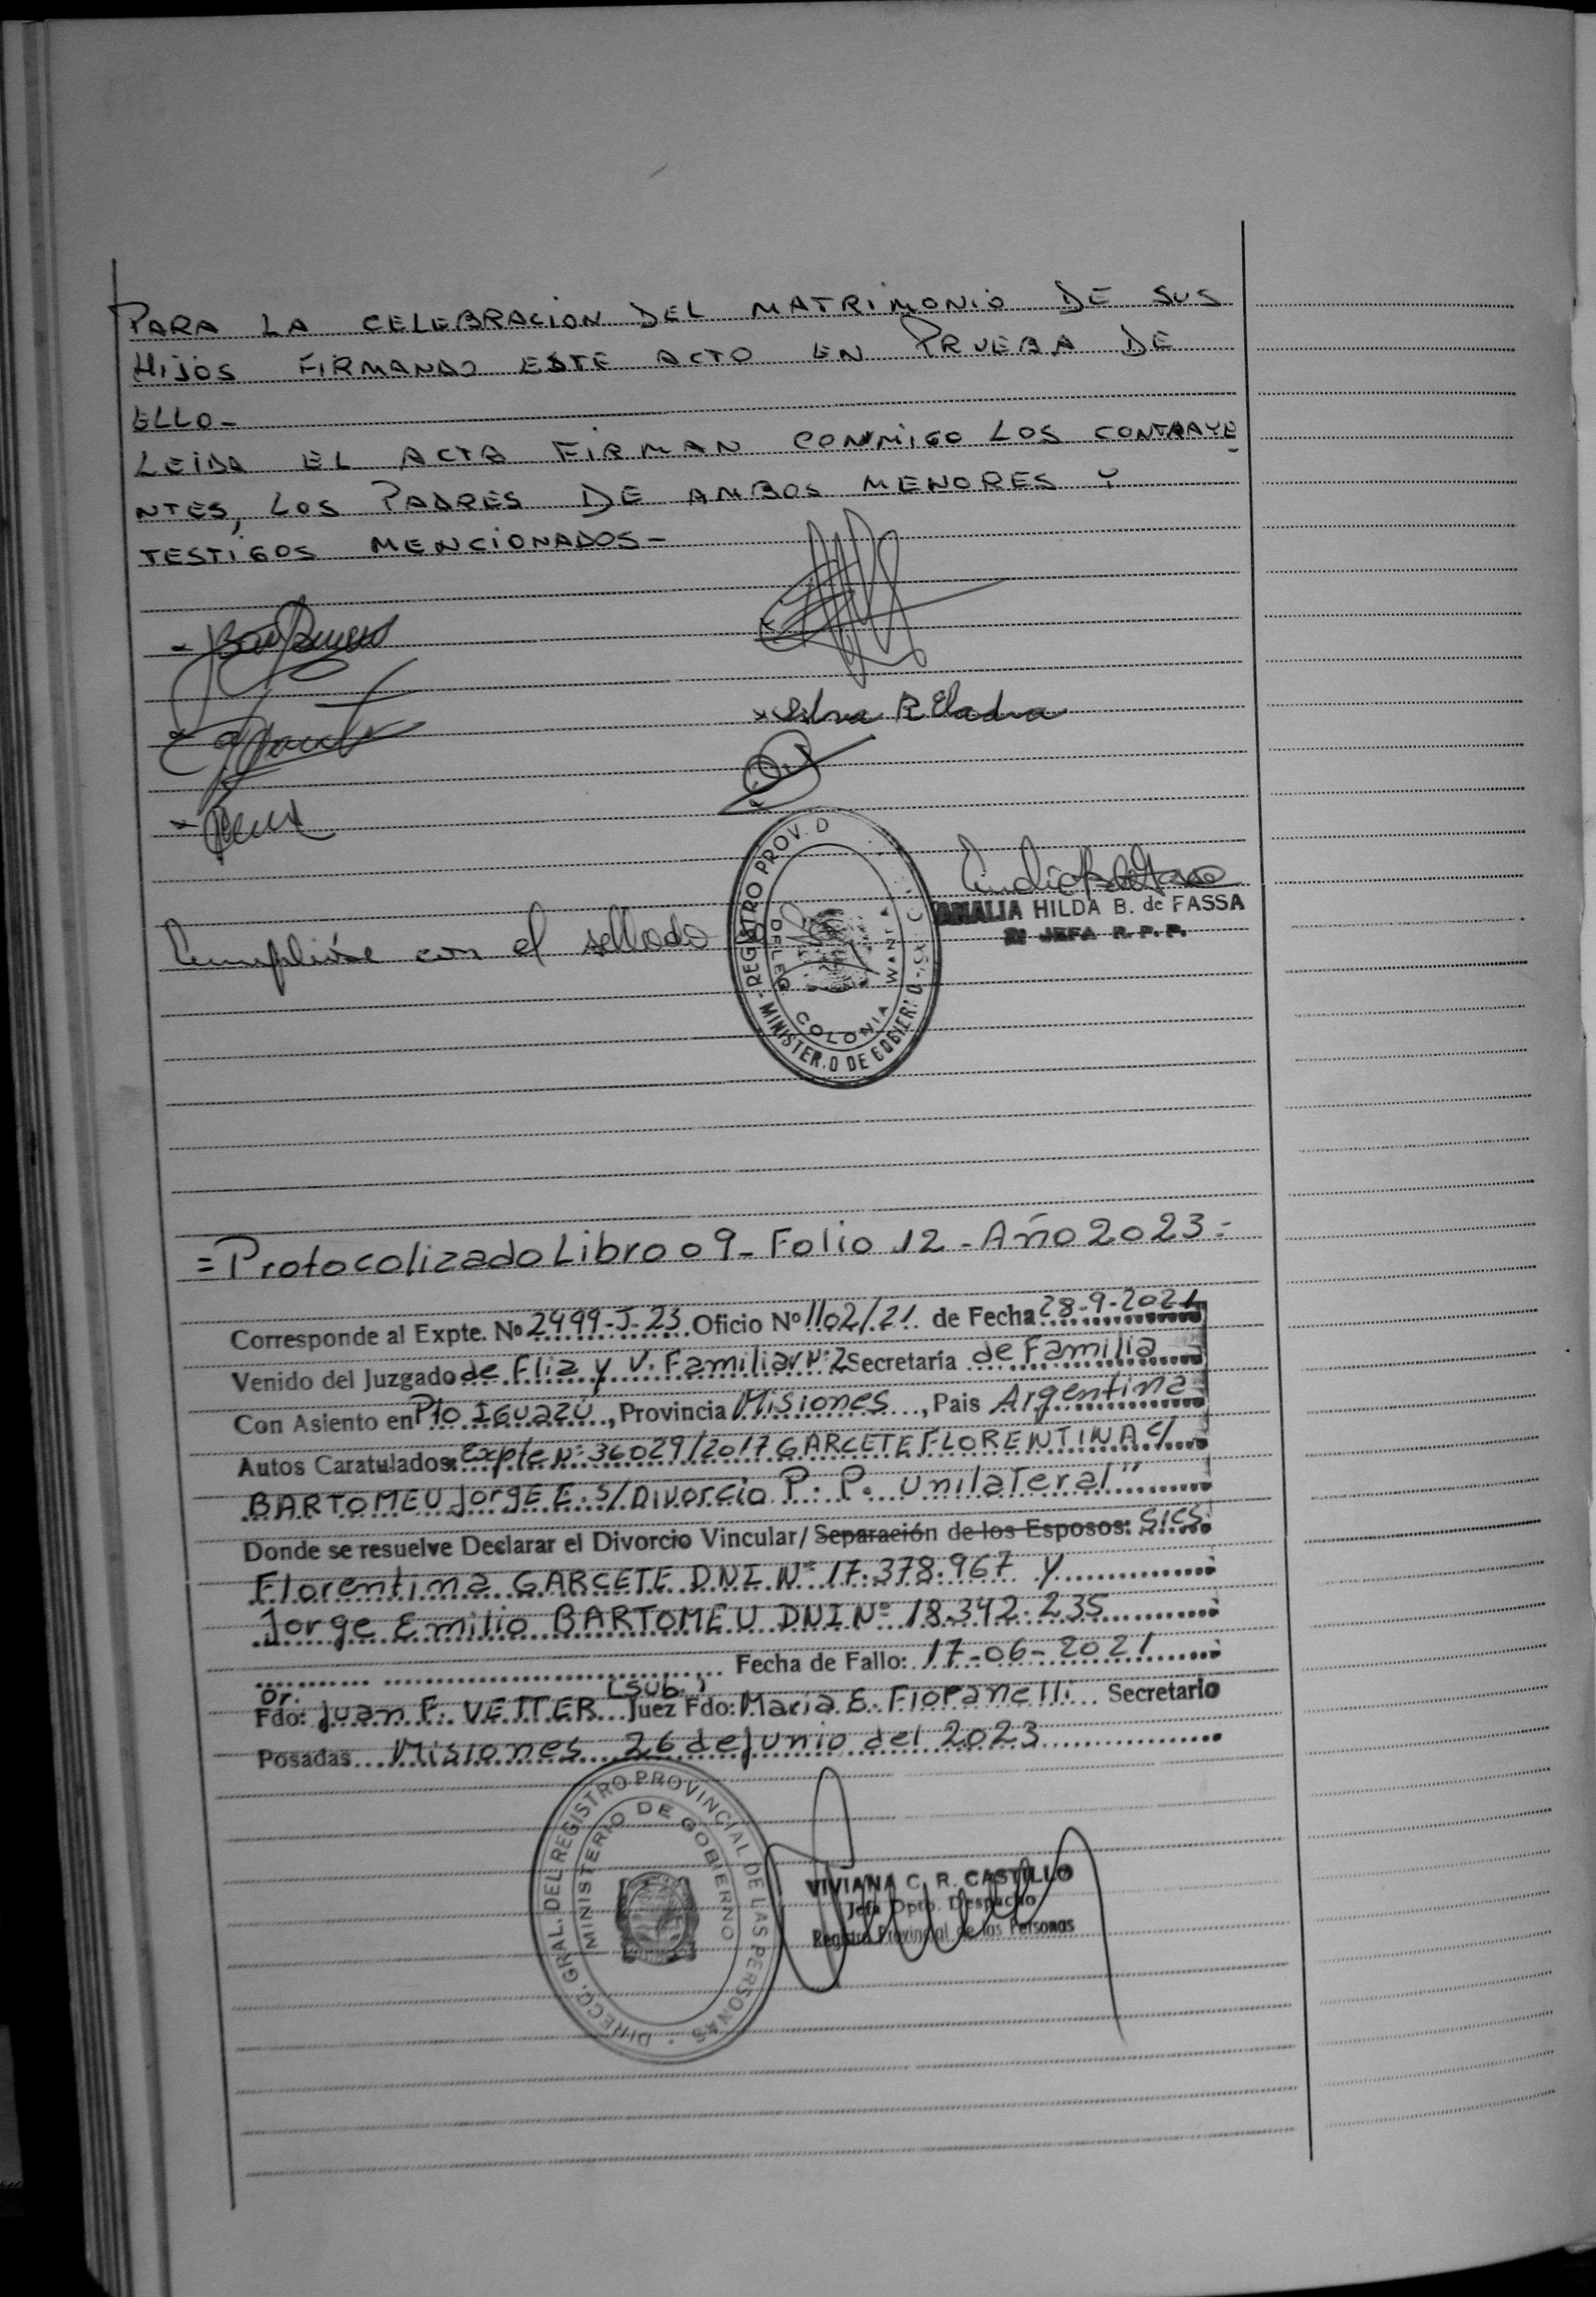 PARA LA CELEBRACION DEL MATRIMONIO DE SUS
HIJOS FIRMANDO ESTE ACTO EN PRUEBA DE
ELLO-
LEIDA EL ACTA FIRMAN CONMIGO LOS CONTRAYE
NTES, LOS PADRES DE AMBOS MENORES Y
TESTIGOS MENCIONADOS-
REGISTRO PROV. D
DELEG
COLONIA WANDA
MINISTERIO DE GOBIERNO
AMALIA HILDA B. de FASSA
JEFA R. P. P.
con el sellado
=Protocolizado Libro 09- Folio 12 - Año 2023=
Corresponde al Expte. Nº 2499-J-23 Oficio Nº 1102/21 de Fecha 28-9-2021
Venido del Juzgado de Flia y V. Familiar Nº 2 Secretaría de Familia
Con Asiento en Pto Iguazú, Provincia Misiones, Pais Argentina
Autos Caratulados: Expte Nº 36029/2017 GARCETE FLORENTINA C/
BARTOMEU Jorge E. S/ Divorcio P. P. unilateral"
Donde se resuelve Declarar el Divorcio Vincular/ Separación de los Esposos: Sres.
Florentina GARCETE DNI Nº 17.378.967 y
Jorge Emilio BARTOMEU DNI Nº 18.342.235
Fecha de Fallo: 17-06-2021
Fdo: Dr. Juan F. VETTER (Sub.) Juez Fdo: María E. Fiopanelli Secretario
Posadas Misiones 26 de junio del 2023
DIRECC. GRAL. DEL REGISTRO PROVINCIAL DE LAS PERSONAS
MINISTERIO DE GOBIERNO
VIVIANA C. R. CASTILLO
Jefa Dpto. Despacho
Registro Provincial de las Personas